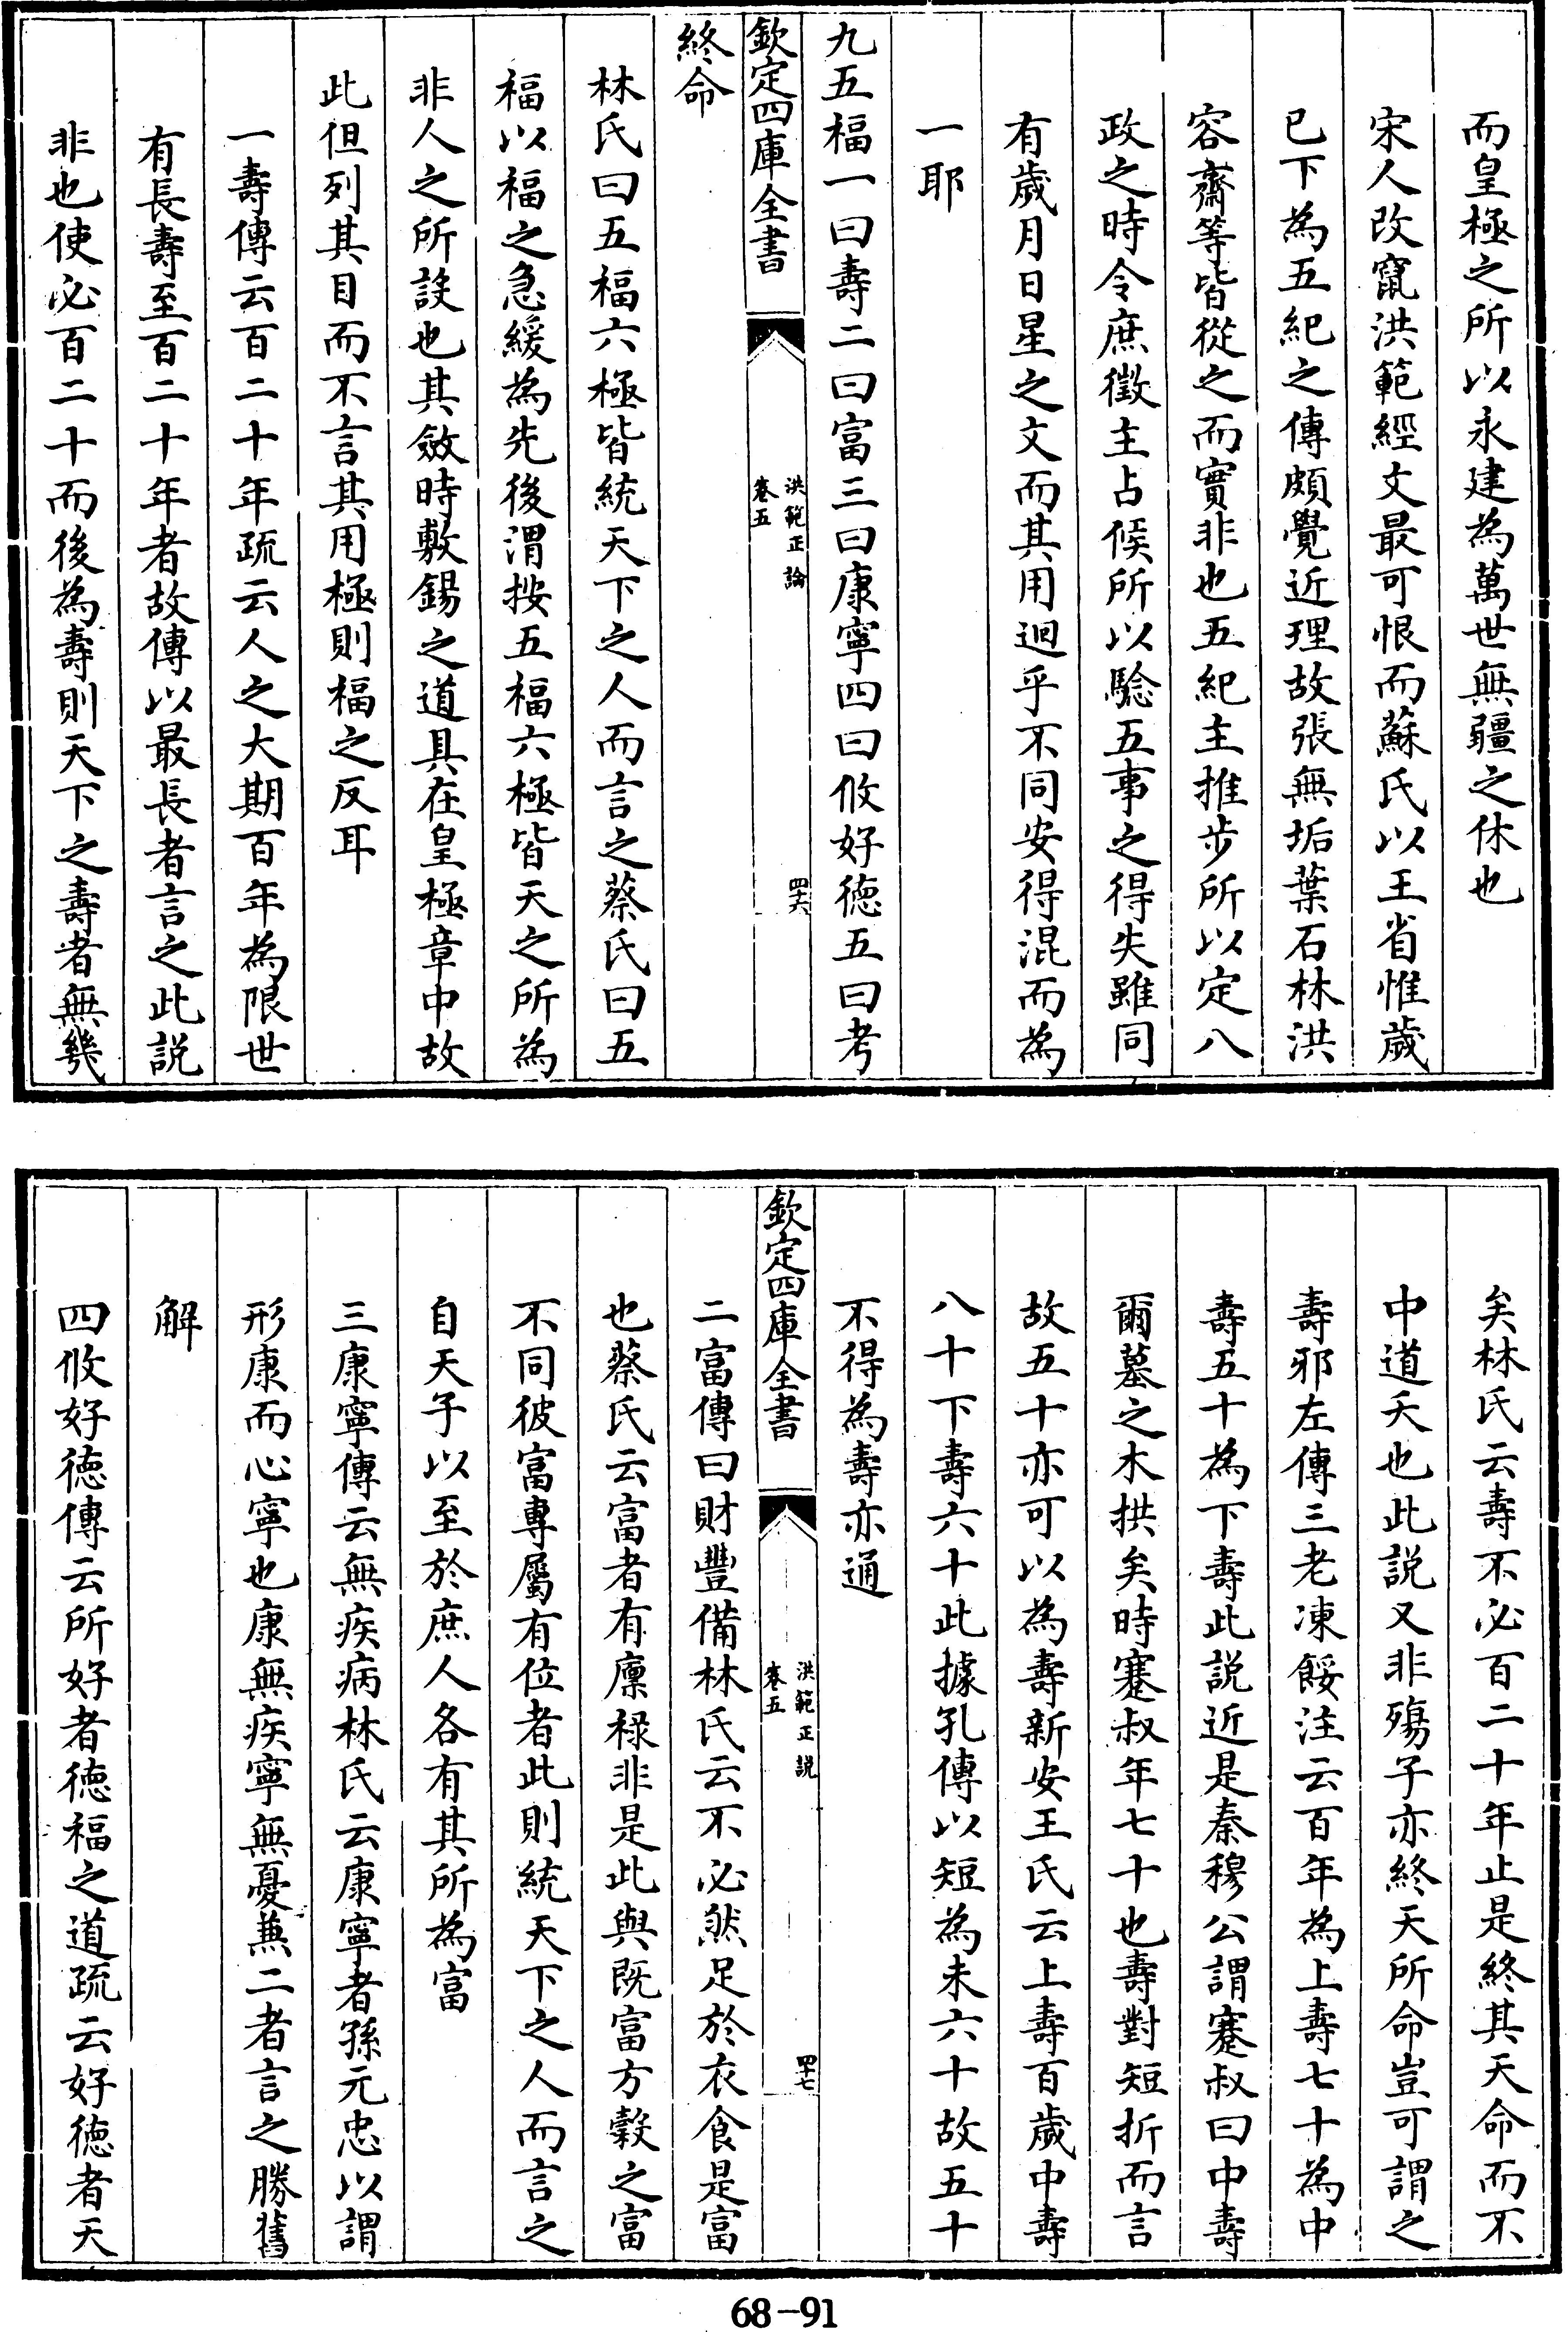 而皇極之所以永建為萬世無疆之休也
宋人改竄洪範經文最可恨而蘇氏以王省惟歲
已下為五紀之傳頗覺近理故張無垢葉石林洪
容齋等皆從之而實非也五紀主推步所以定八
政之時令庶徵主占候所以驗五事之得失雖同
有歲月日星之文而其用迥乎不同安得混而為
一耶
九五福一曰壽二曰富三曰康寧四曰攸好德五曰考
欽定四庫全書
洪範正論
卷五
四六
終命
林氏曰五福六極皆統天下之人而言之蔡氏曰五
福以福之急緩為先後渭按五福六極皆天之所為
非人之所設也其斂時敷錫之道具在皇極章中故
此但列其目而不言其用極則福之反耳
一壽傳云百二十年疏云人之大期百年為限世
有長壽至百二十年者故傳以最長者言之此說
非也使必百二十而後為壽則天下之壽者無幾
矣林氏云壽不必百二十年止是終其天命而不
中道夭也此説又非殤子亦終天所命豈可謂之
壽邪左傳三老凍餒注云百年為上壽七十為中
壽五十為下壽此説近是秦穆公謂蹇叔曰中壽
爾墓之木拱矣時蹇叔年七十也壽對短折而言
故五十亦可以為壽新安王氏云上壽百歲中壽
八十下壽六十此據孔傳以短為未六十故五十
不得為壽亦通
欽定四庫全書
洪範正説
卷五
四七
二富傳曰財豐備林氏云不必然足於衣食是富
也蔡氏云富者有廩祿非是此與既富方穀之富
不同彼富專屬有位者此則統天下之人而言之
自天子以至於庶人各有其所為富
三康寧傳云無疾病林氏云康寧者孫元忠以謂
形康而心寧也康無疾寧無憂兼二者言之勝舊
解
四攸好德傳云所好者德福之道疏云好德者天
68-91